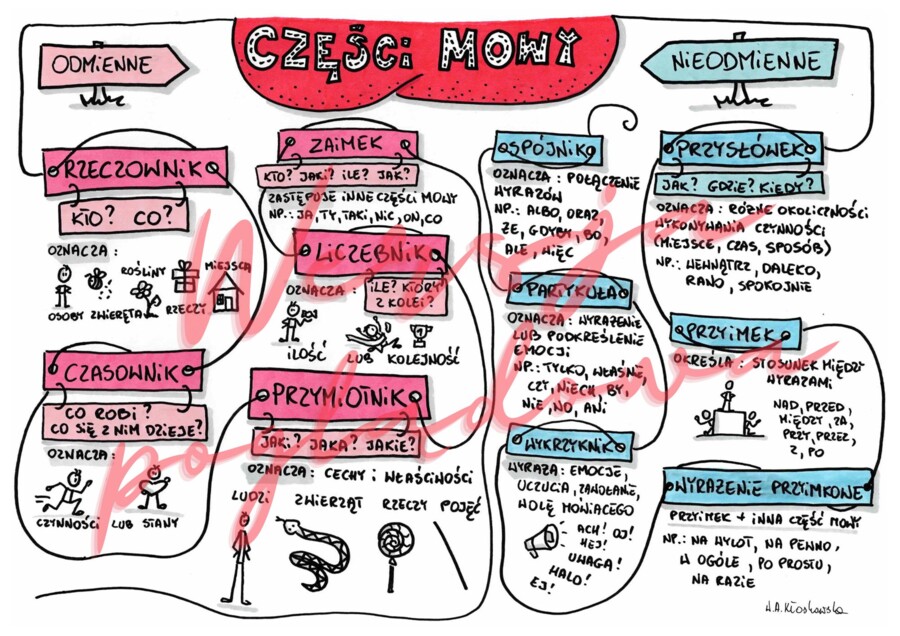 CZĘŚCI MOWY
ODMIENNE
NIEODMIENNE
RZECZOWNIK
KTO? CO?
OZNACZA:
OSOBY
ZWIERZĘTA
ROŚLINY
RZECZY
MIEJSCA
CZASOWNIK
CO ROBI?
CO SIĘ Z NIM DZIEJE?
OZNACZA:
CZYNNOŚCI LUB STANY
ZAIMEK
KTO? JAKI? ILE? JAK?
ZASTĘPUJE INNE CZĘŚCI MOWY
NP.: JA, TY, TAKI, NIC, ON, CO
LICZEBNIK
ILE? KTÓRY
Z KOLEI?
OZNACZA:
ILOŚĆ
LUB KOLEJNOŚĆ
PRZYMIOTNIK
JAKI? JAKA? JAKIE?
OZNACZA: CECHY I WŁAŚCIWOŚCI
LUDZI
ZWIERZĄT
RZECZY
POJĘĆ
SPÓJNIK
OZNACZA: POŁĄCZENIE
WYRAZÓW
NP.: ALBO, ORAZ,
ŻE, GDYBY, BO,
ALE, WIĘC
PARTYKUŁA
OZNACZA: WYRAŻENIE
LUB PODKREŚLENIE
EMOCJI
NP.: TYLKO, WŁAŚNIE,
CZY, NIECH, BY,
NIE, NO, ANI
WYKRZYKNIK
WYRAŻA: EMOCJE,
UCZUCIA, ZAWOŁANIE,
WOLĘ MÓWIĄCEGO
ACH! OJ!
HEJ!
UWAGA!
HALO!
EJ!
PRZYSŁÓWEK
JAK? GDZIE? KIEDY?
OZNACZA: RÓŻNE OKOLICZNOŚCI
WYKONYWANIA CZYNNOŚCI
(MIEJSCE, CZAS, SPOSÓB)
NP.: WEWNĄTRZ, DALEKO,
RANO, SPOKOJNIE
PRZYIMEK
OKREŚLA: STOSUNEK MIĘDZY
WYRAZAMI
NAD, PRZED,
MIĘDZY, ZA,
PRZY, PRZEZ,
Z, PO
WYRAŻENIE PRZYIMKOWE
PRZYIMEK + INNA CZĘŚĆ MOWY
NP.: NA WYLOT, NA PEWNO,
W OGÓLE, PO PROSTU,
NA RAZIE
Wersja
poglądowa